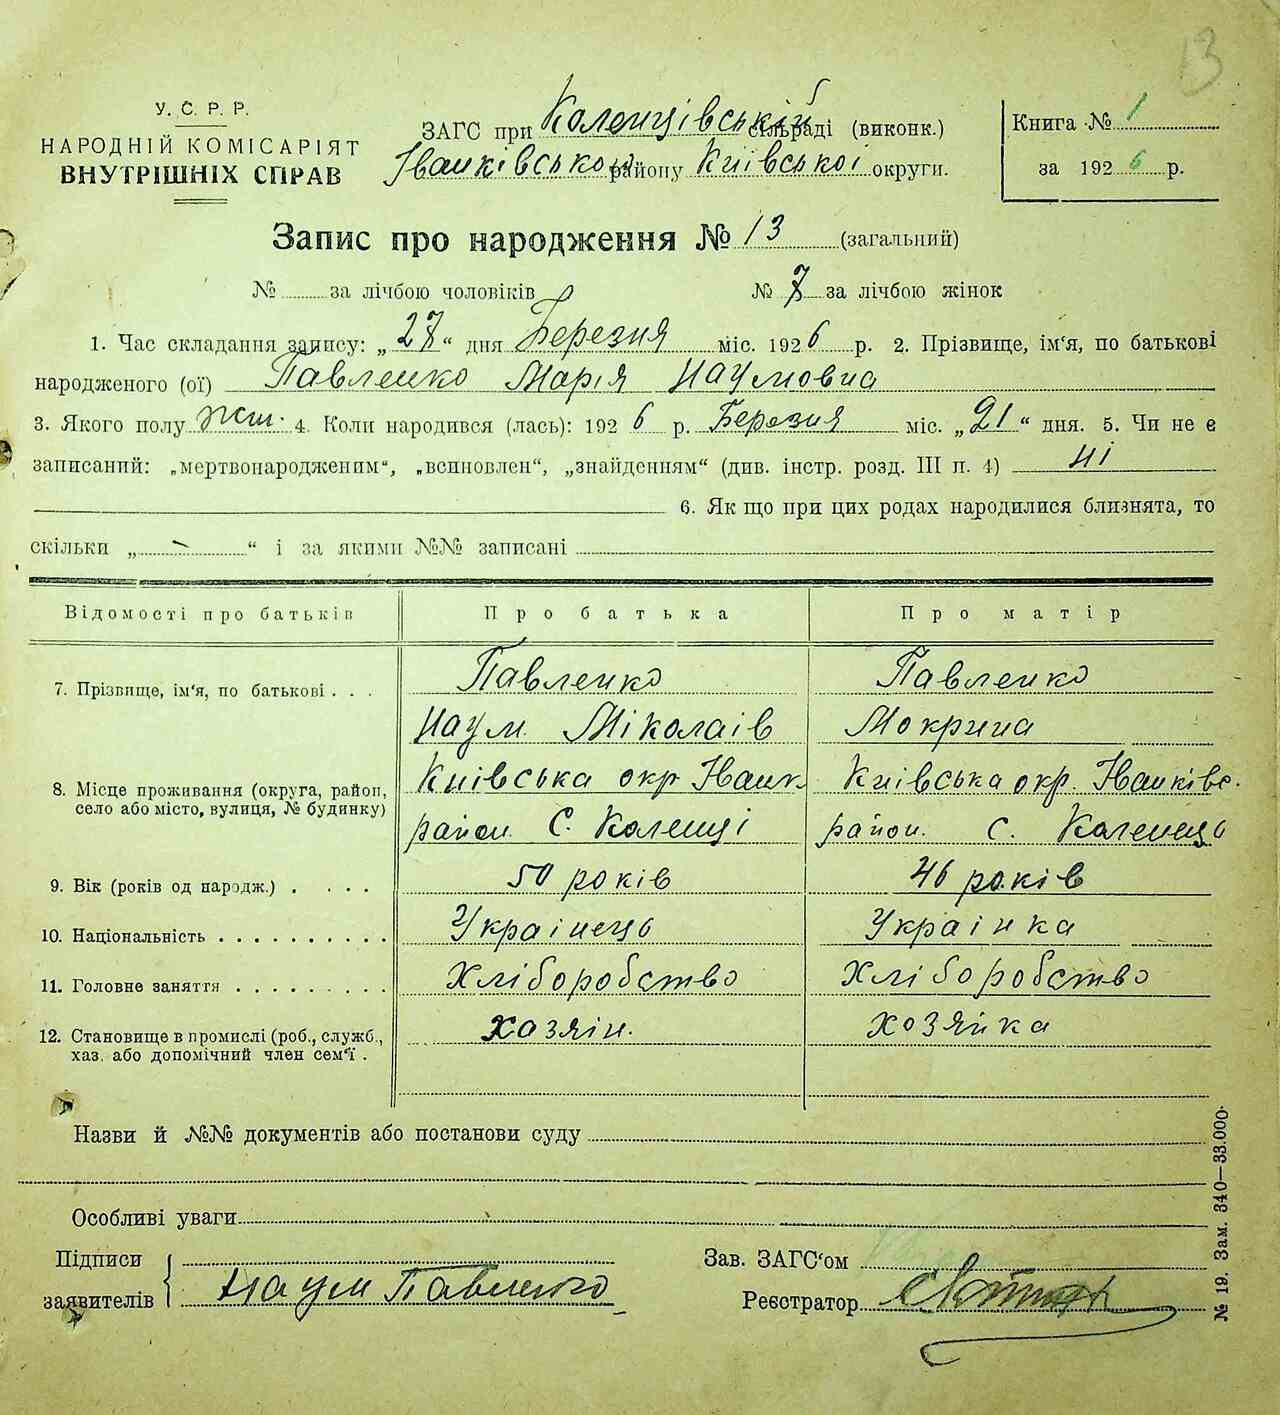 13
У. С. Р. Р.
НАРОДНІЙ КОМІСАРІЯТ
ВНУТРІШНІХ СПРАВ
ЗАГС при Коленцівській сільраді (виконк.)
Іванківського району Київської округи.
Книга № 1
за 1926 р.
Запис про народження № 13 (загальний)
№ за лічбою чоловіків № 7 за лічбою жінок
1. Час складання запису: „27“ дня Березня міс. 1926 р. 2. Прізвище, ім‘я, по батькові
народженого (ої) Павленко Марія Наумовна
3. Якого полу жін. 4. Коли народився (лась): 1926 р. Березня міс. „21“ дня. 5. Чи не є
записаний: „мертвонародженим“, „всиновлен“, „знайденням“ (див. інстр. розд. III п. 4) ні
6. Як що при цих родах народилися близнята, то
скільки „ — “ і за якими №№ записані
Відомості про батьків Про батька Про матір
7. Прізвище, ім‘я, по батькові . . . Павленко Павленко
Наум Міколаів Мокрина
8. Місце проживання (округа, район, село або місто, вулиця, № будинку) Київська окр Іванк Київська окр. Іванківс.
район С. Коленці район. С. Коленець
9. Вік (років од народж.) . . . . 50 років 46 років
10. Національність . . . . . . . . . . Українець Українка
11. Головне заняття . . . . . . . . . Хліборобство Хліборобство
12. Становище в промислі (роб., служб., хаз. або допомічний член сем‘ї . хазяін. хозяйка
Назви й №№ документів або постанови суду
Особливі уваги
Підписи
заявителів Наум Павленко
Зав. ЗАГС‘ом
Реєстратор
№ 19. Зам. 340—33.000.